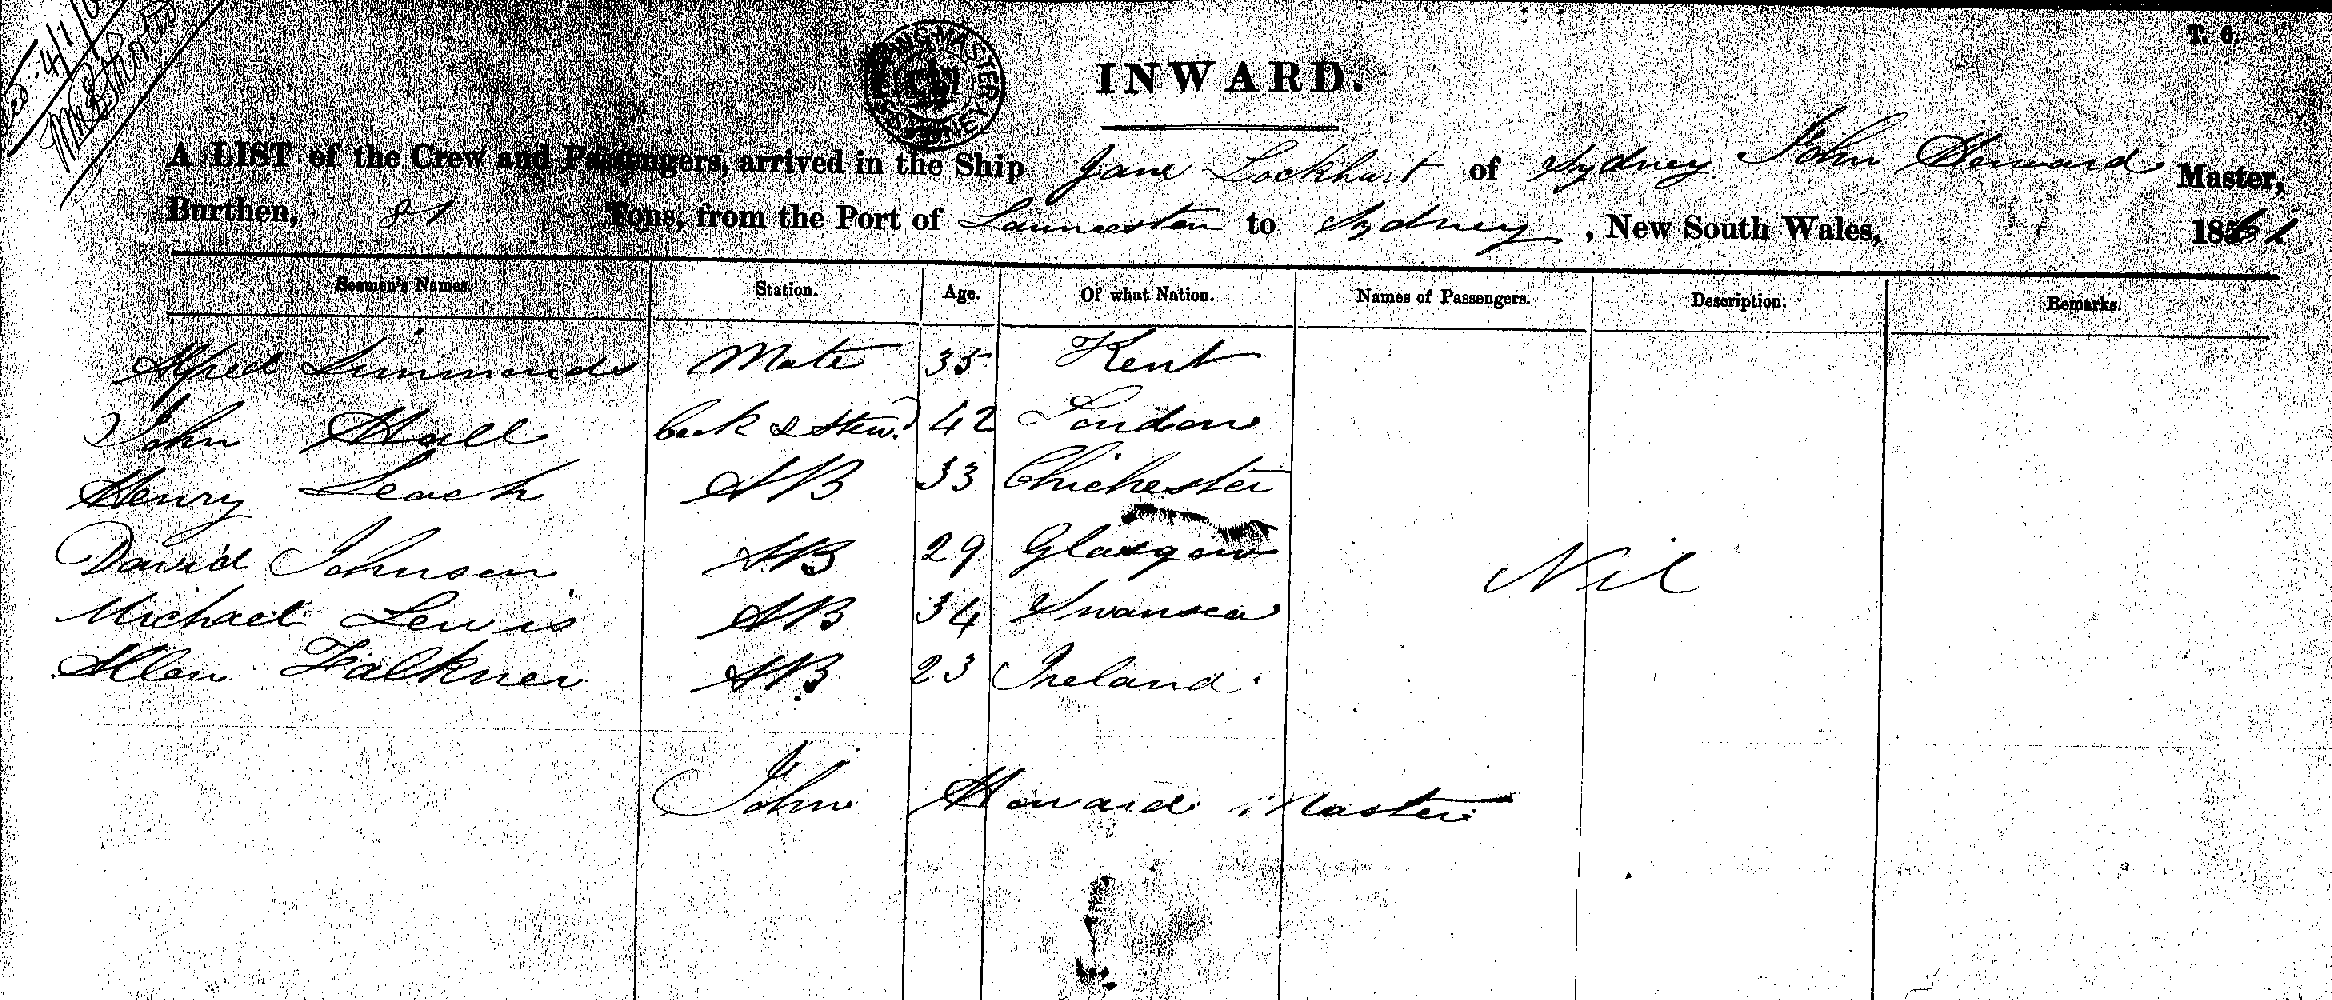 T. 6.
INWARD.
A LIST of the Crew and Passengers, arrived in the Ship Jane Lockhart of Sydney John Howard Master,
Burthen, 81 Tons, from the Port of Launceston to Sydney, New South Wales, 1861
Seamen's Names. Station. Age. Of what Nation. Names of Passengers. Description. Remarks.
Alfred Simmonds Mate 35 Kent
John Hall Cook & Stew. 42 London
Henry Leach AB 33 Chichester
David Johnson AB 29 Glasgow
Nil
Michael Lewis AB 34 Swansea
Allen Falkner AB 23 Ireland
John Howard Master